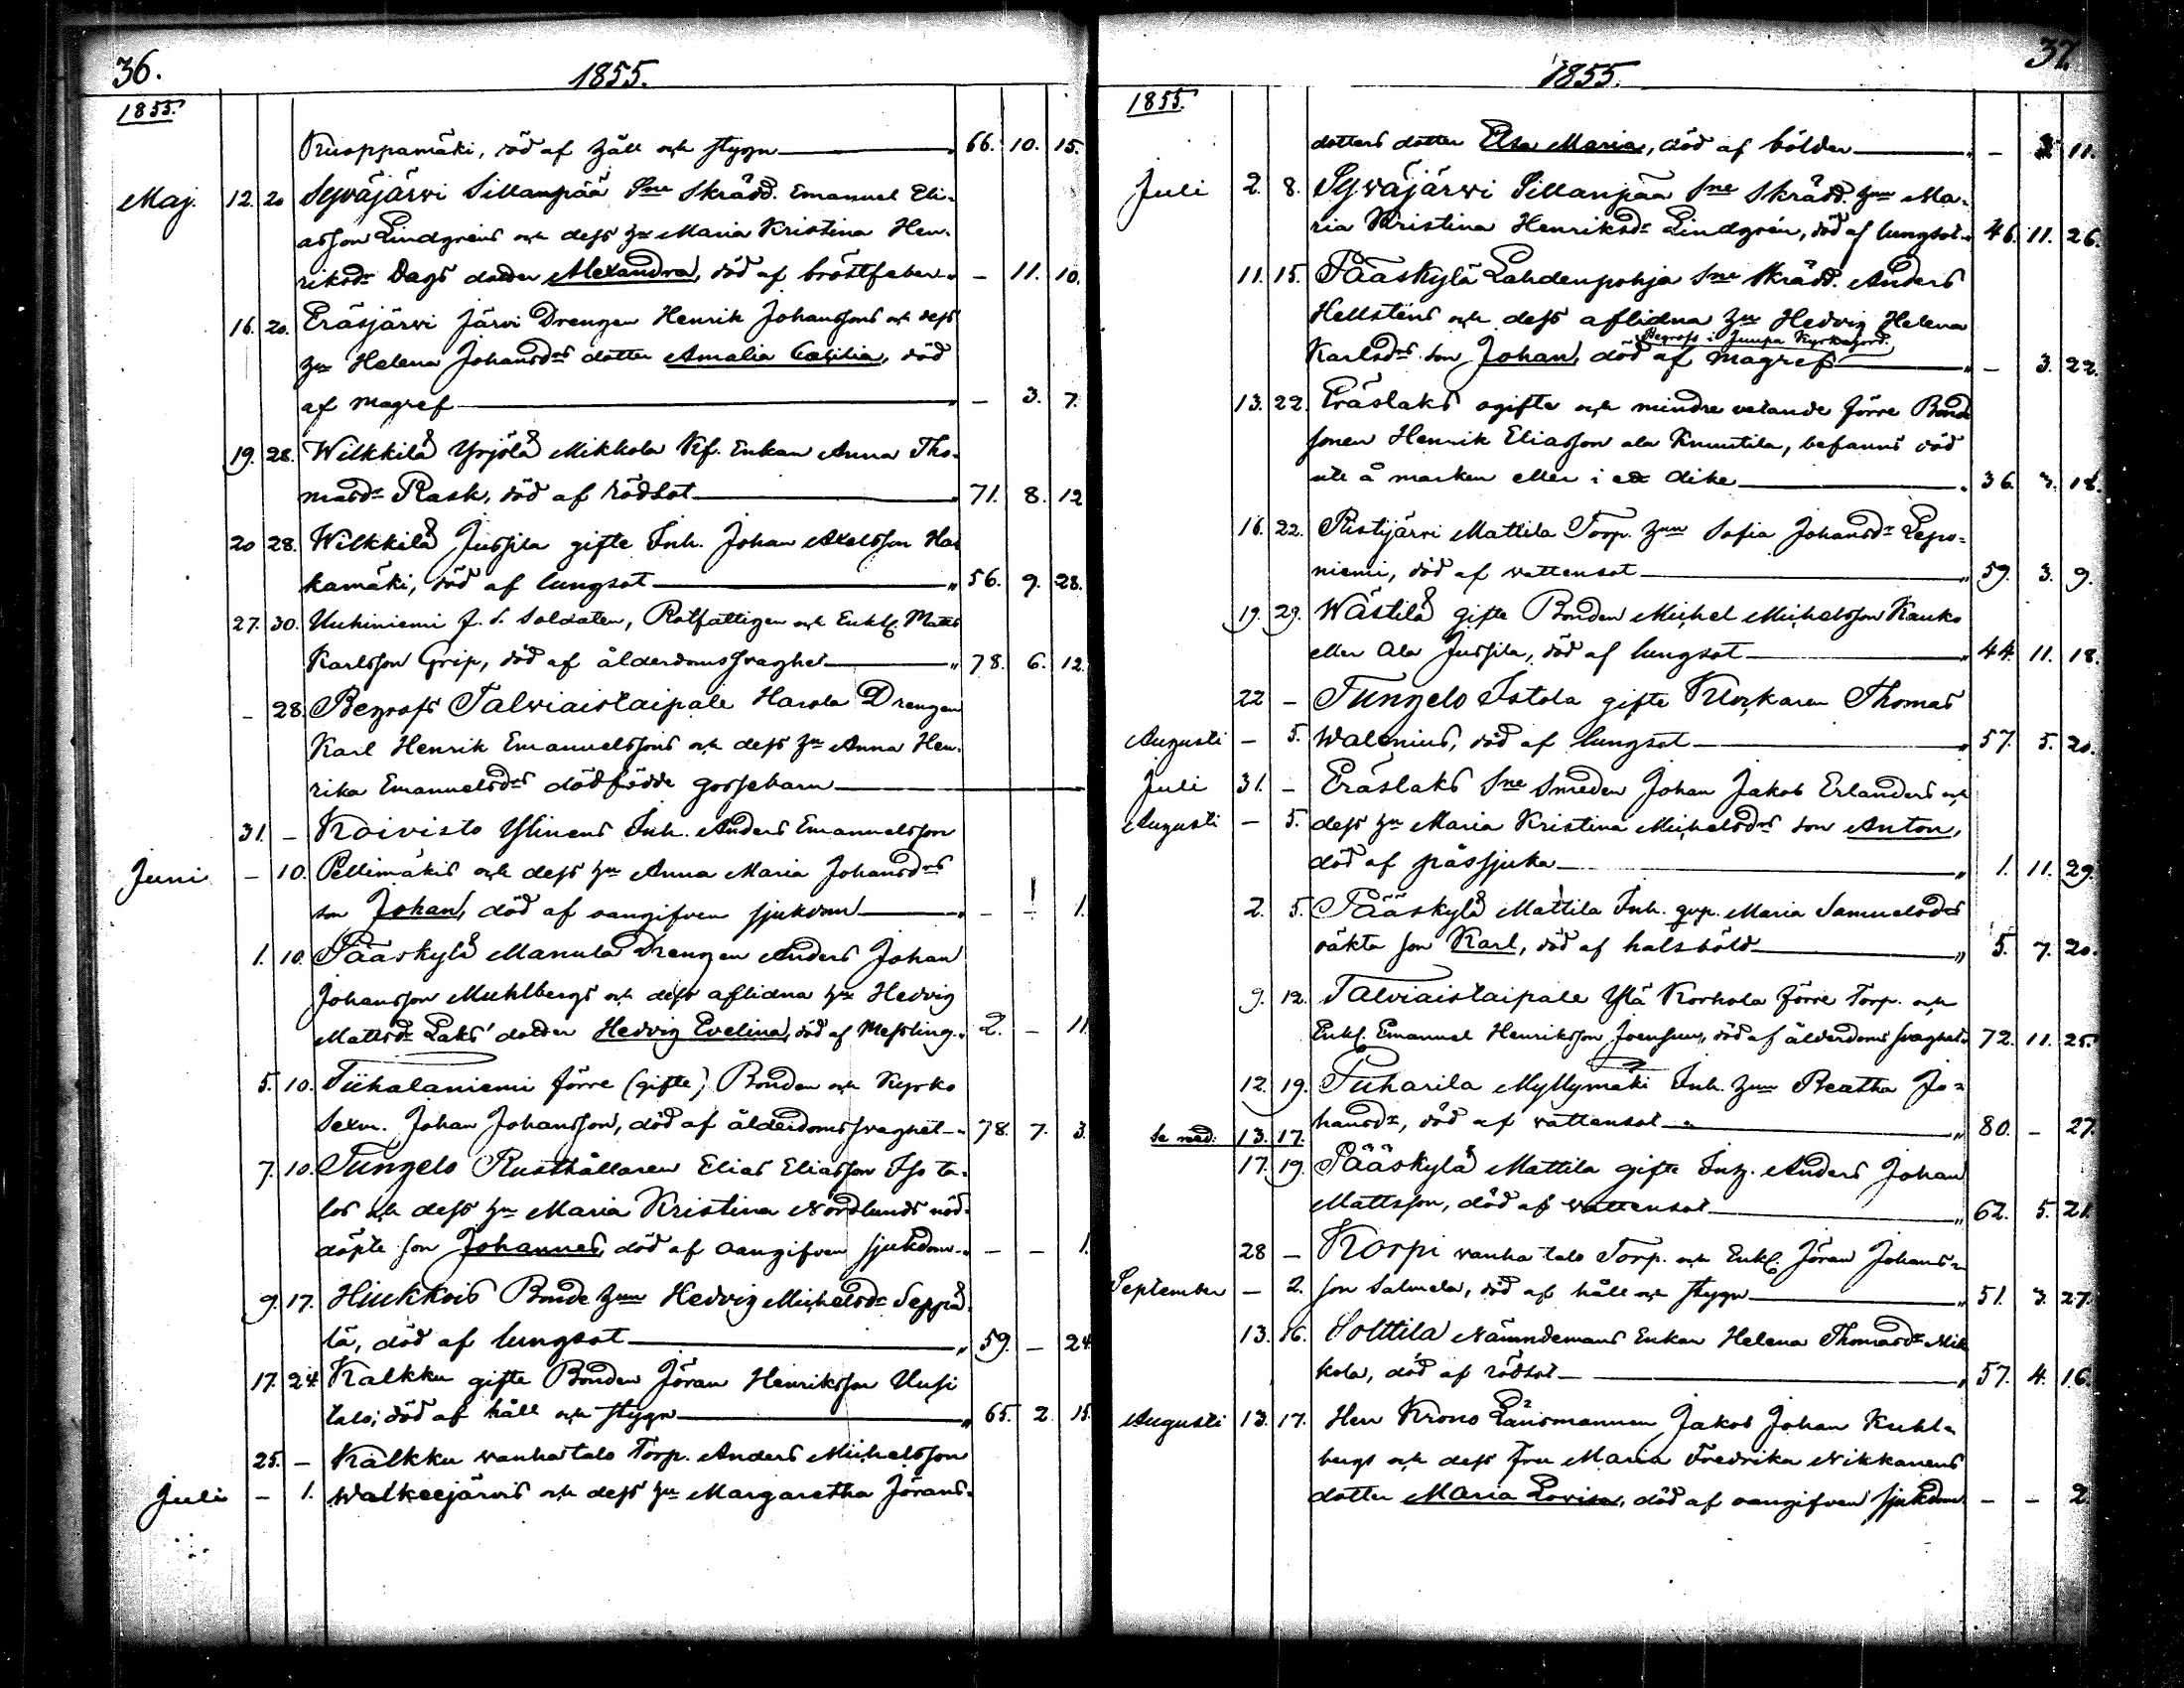 36.
1855.
1855.
Kuoppamäki, död af håll och stygn " 66. 10. 15.
Maj. 12. 20 Sywäjärwi Sillanpää Sne Skrädd. Emanuel Eli-
asson Lindgréns och dess hu Maria Kristina Hen-
riksdr Dags dotter Alexandra, död af bröstfeber " - 11. 10.
16. 20. Eräsjärwi Järwi Drengen Henrik Johanssons och dess
hu Helena Johansdrs dotter Amalia Cæcilia, död
af magref " - 3. 7.
19. 28. Wilkkilä Yrjölä Mikkola Kf. Enkan Anna Tho-
masdr Rask, död af rödsot " 71. 8. 12
20 28. Wilkkilä Jussila gifte Inh. Johan Axelsson Ha
kamäki, död af lungsot " 56. 9. 28.
27. 30. Uuhiniemi f. d. Soldaten, Rotfattigen och Enkl. Matts
Karlsson Grip, död af ålderdomssvaghet " 78. 6. 12.
- 28. Begrofs Talviaistaipale Harola Drengen
Karl Henrik Emanuelssons och dess hu Anna Hen-
rika Emanuelsdrs dödfödde gossebarn
31. - Koivisto Ylinens Inh. Anders Emanuelsson
Juni - 10. Pellimäkis och dess hu Anna Maria Johansdrs
son Johan, död af oangifven sjukdom " - - 1.
1. 10. Pääskylä Manula Drengen Anders Johan
Johansson Muhlbergs och dess aflidna hu Hedvig
Mattsdr Laks' dotter Hedvig Evelina, död af Messling " 2. - 11.
5. 10. Tiihalaniemi förre (gifte) Bonden och Kyrko
Sexm. Johan Johansson, död af ålderdomssvaghet " 78. 7. 3.
7. 10. Tungelo Rusthållaren Elias Eliasson Iso ta-
los och dess hu Maria Kristina Nordlunds nöd-
döpte son Johannes, död af oangifven sjukdom " - - 1.
9. 17. Hiukkois Bonde hun Hedvig Michelsdr Seppä-
lä, död af lungsot " 59. - 24.
17. 24. Kalkku gifte Bonden Jöran Henriksson Uusi
talo; död af håll och stygn " 65. 2. 15.
25. - Kalkku wanhatalo Torp. Anders Michelsson
Juli - 1. Walkeejärvis och dess hu Margaretha Jörans-
37.
1855.
1855.
dotters dotter Elsa Maria, död af bölder " - 2 11.
Juli 2. 8. Sywäjärwi Sillanpää Sne Skrädd. hun Ma-
ria Kristina Henriksdr Lindgrén, död af lungsot " 46. 11. 26.
11. 15. Pääskylä Lahdenpohja Sne Skrädd. Anders
Hellsténs och dess aflidna hu Hedvig Helena
Begrofs i Juupa Kyrkojord.
Karlsdrs son Johan, död af magref " - 3. 22.
13. 22. Eräslaks ogifte och mindre vetande förre Bonde
sonen Henrik Eliasson ala Knuutila, befanns död
ute å marken eller i ett dike " 36. 3. 18.
16. 22. Ristijärvi Mattila Torp. hun Sofia Johansdr Lepo-
niemi, död af vattensot " 59. 3. 9.
19. 29. Wästilä gifte Bonden Michel Michelsson Kauko
eller Ala Jussila, död af lungsot " 44. 11. 18.
22 - Tungelo Istola gifte Klockaren Thomas
Augusti - 5. Walenius, död af lungsot " 57. 5. 20.
Juli 31. - Eräslaks Sne Smeden Johan Jakob Erlanders och
Augusti - 5. dess hu Maria Kristina Michelsdrs son Anton,
död af påssjuka " 1. 11. 29.
2. 5. Pääskylä Mattila Inh. qvp. Maria Samuelsdrs
oäkta son Karl, död af halsböld " 5. 7. 20.
9. 12. Talviaistaipale Ylä Korhola förre Torp. och
Enkl. Emanuel Henriksson Joensuu, död af ålderdomssvaghet " 72. 11. 25.
12. 19. Puharila Myllymäki Inh. hun Beatha Jo-
hansdr, död af vattensot " 80. - 27.
se ned: 13. 17.
17. 19. Pääskylä Mattila gifte Inh. Anders Johan
Mattsson, död af vattensot " 62. 5. 21.
28 - Korpi wanha talo Torp. och Enkl. Jöran Johans-
September - 2. son Salmela, död af håll och stygn " 51. 3. 27.
13. 16. Solttila Nämndemans Enkan Helena Thomasdr Mik
kola, död af rödsot " 57. 4. 16.
Augusti 13. 17. Herr Krono Länsmannen Jakob Johan Kuhl-
bergs och dess Fru Maria Fredrika Nikkanens
dotter Maria Lovisa, död af oangifven sjukdom - - 2.